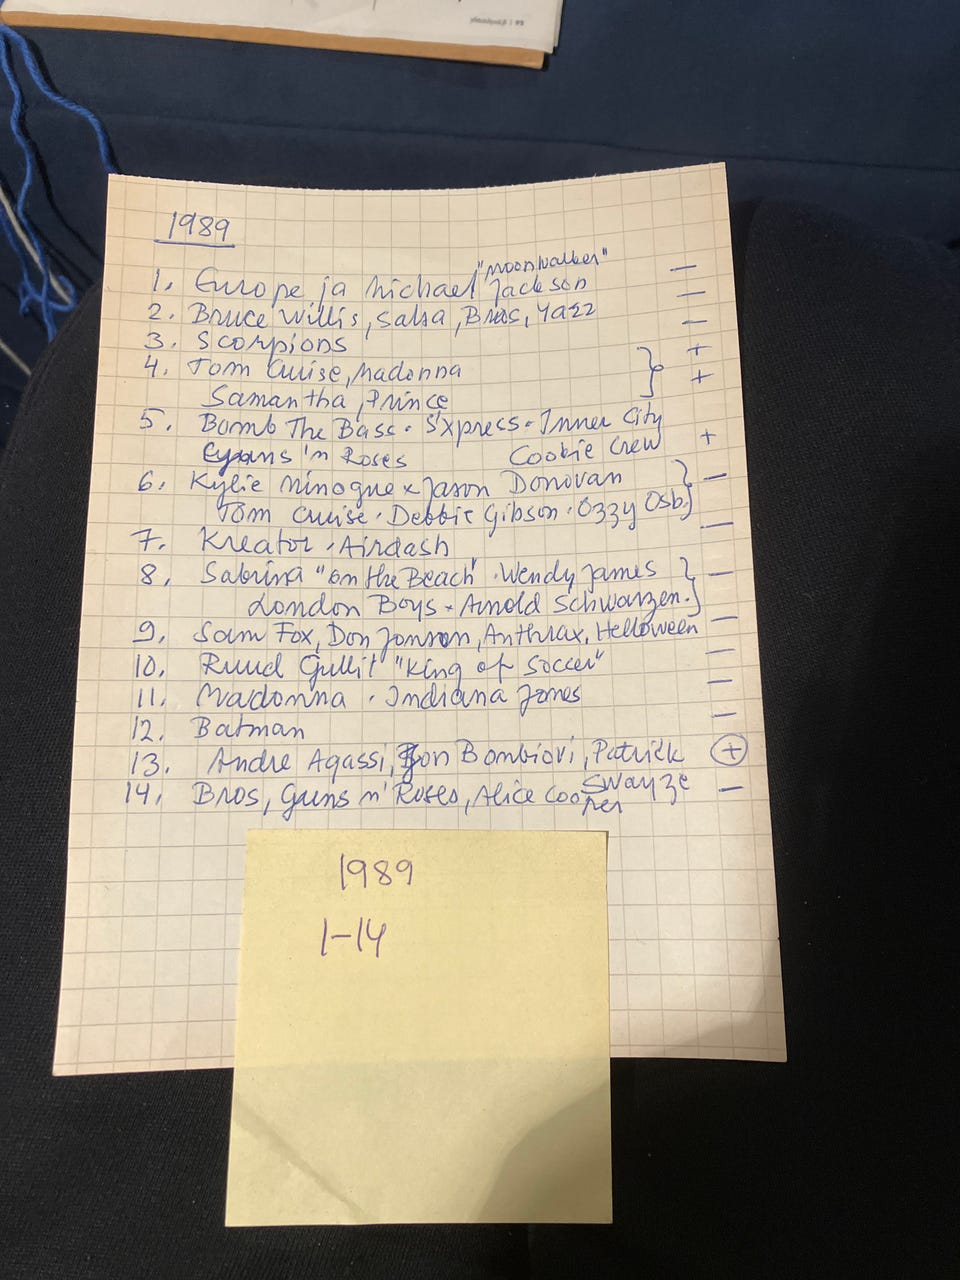 1989
"Moonwalker"
1. Europe ja Michael Jackson —
2. Bruce Willis, Salsa, Bros, Yazz —
3. Scorpions —
4. Tom Cruise, Madonna } +
Samantha, Prince +
5. Bomb The Bass · S'xpress · Inner City
Guns 'n Roses Cookie Crew +
6. Kylie Minogue x Jason Donovan } —
Tom Cruise · Debbie Gibson · Ozzy Osb.
7. Kreator · Airdash —
8. Sabrina "on the Beach" · Wendy James } —
London Boys · Arnold Schwarzen.
9. Sam Fox, Don Jonson, Anthrax, Helloween —
10. Ruud Gullit "King of Soccer" —
11. Madonna · Indiana Jones —
12. Batman —
13. Andre Agassi, Jon Bombiovi, Patrick +
Swayze
14. Bros, Guns n' Roses, Alice Cooper —
1989
1-14